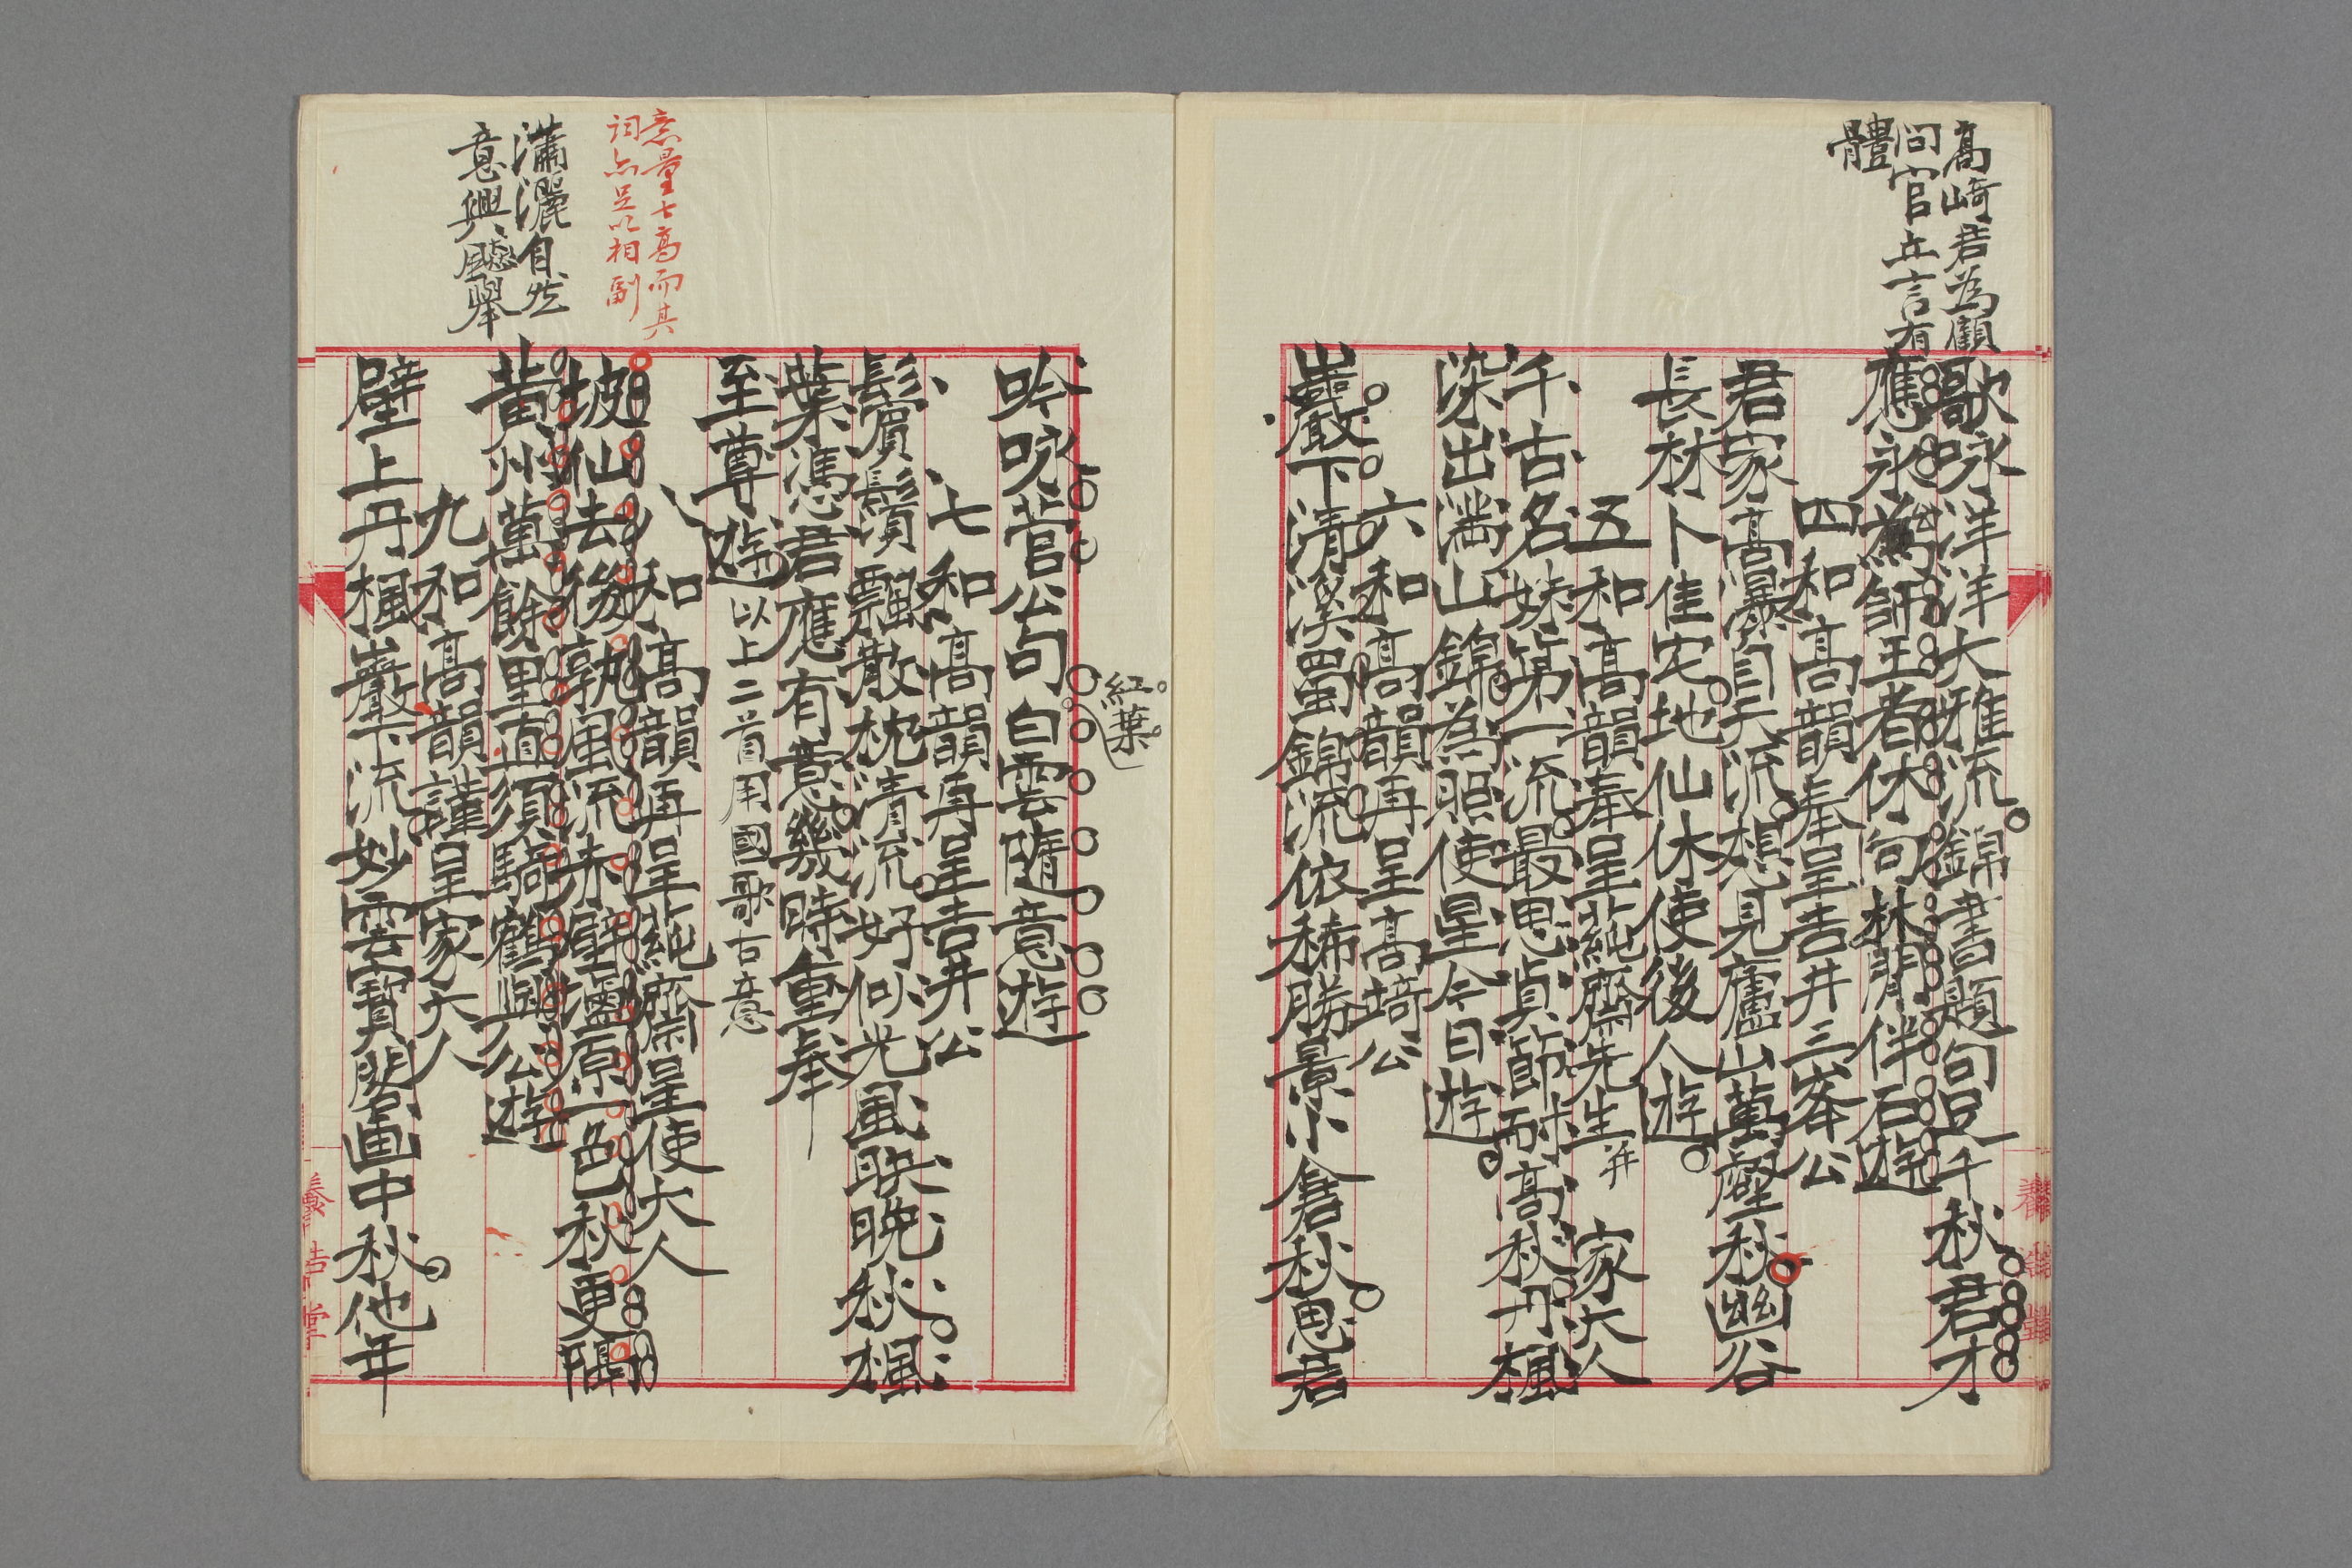 高崎君為顧
問官立言有
體
歌咏洋洋大雅流錦書題句足千秋君才
應永為師王者休向林間伴石遊
四和高韻奉呈吉井三峯公
君家高瀑自天流想見廬山萬壑秋幽谷
長林卜佳宅地仙休使後人遊
五和高韻奉呈純齋先生并家大人
千古名姝第一流最思貞節耐高秋丹楓
深出滿山錦為照使星今日遊
六和高韻再呈高崎公
巖下清溪蜀錦流依稀勝景小倉秋思君
吟咏菅公句白雲隨意遊
紅葉
七和高韻再呈吉井公
鬢鬚飄散枕清流好似光風映晚秋楓
葉憑君應有意幾時重奉
至尊遊以上二首用國歌古意
八和高韻再呈純齋星使大人
意量七高而其
詞亦足以相副
坡仙去後孰風流赤壁瀛原一色秋更隔
瀟灑自然
意興飈舉
黃州萬餘里直須騎鶴與公遊
九和高韻謹呈家大人
壁上丹楓巖下流妙雲寶閣畫中秋他年